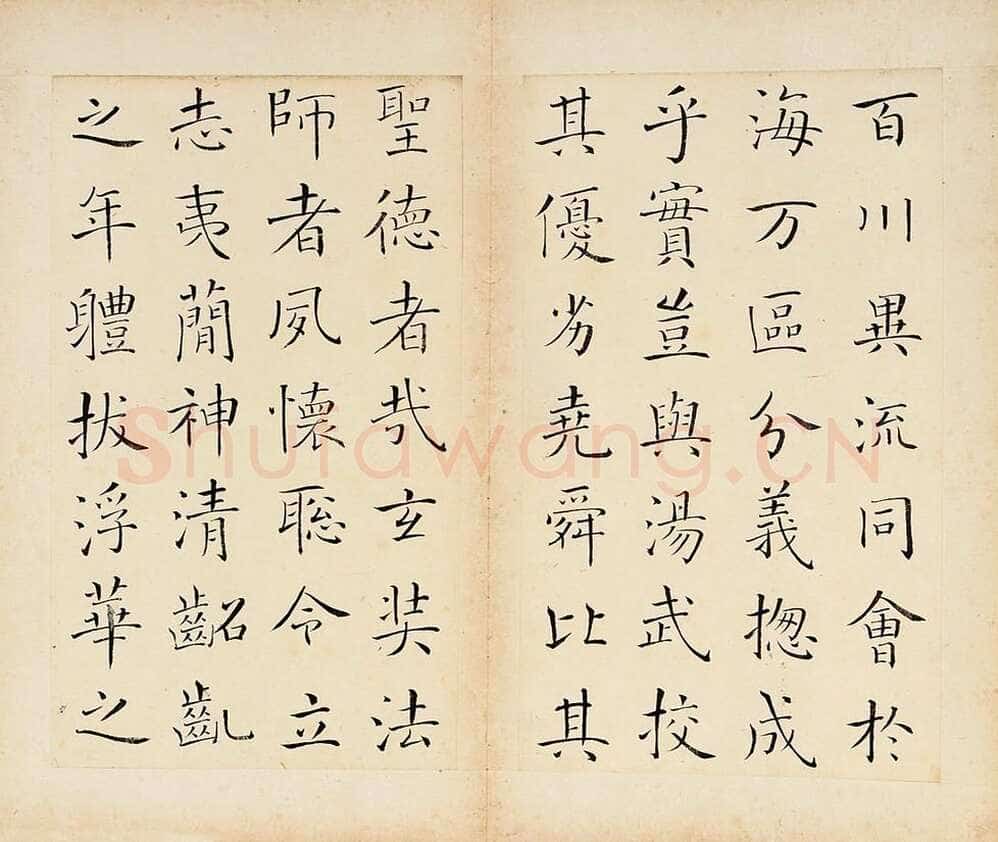 百川異流同會於
海万區分義揔成
乎實豈與湯武校
其優劣堯舜比其
聖德者哉玄奘法
師者夙懷聡令立
志夷簡神清齠齓
之年體拔浮華之
Shufawang.CN